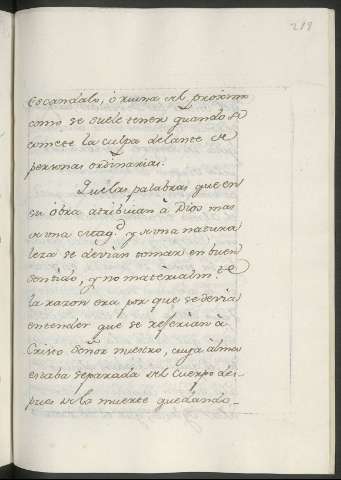 219
escandalo, ó ruina del proximo
como se suele tener quando se
comete la culpa delante de
personas ordinarias.
Que las palabras que en
su obra atribuian à Dios mas
de una y de una natura
leza se devian tomar en buen
sentido, y no materialm.te
la razon era por que se devia
entender que se referian à
Cristo Señor nuestro, cuya alma
estaba separada del Cuerpo des-
pues de la muerte quedando-